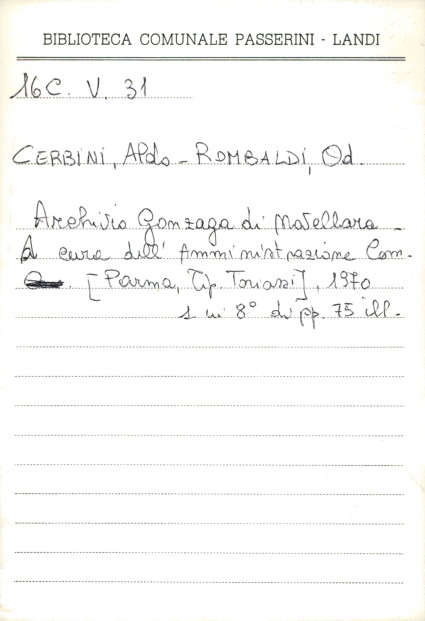 BIBLIOTECA COMUNALE PASSERINI - LANDI
16C. V. 31
CERBINI, Aldo - ROMBALDI, Od.
Archivio Gonzaga di Novellara -
A cura dell' Amministrazione Com.
[Parma, Tip. Toriazzi], 1970
1 in 8° di pp. 75 ill.